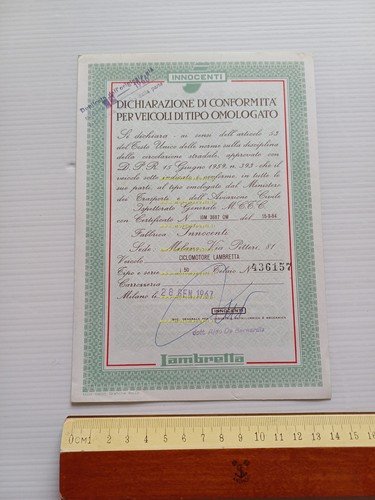 INNOCENTI
DICHIARAZIONE DI CONFORMITA'
PER VEICOLI DI TIPO OMOLOGATO
Si dichiara - ai sensi dell'articolo 53
del Testo Unico delle norme sulla disciplina
della circolazione stradale, approvato con
D. P. R. 15 Giugno 1959, n. 393 - che il
veicolo sotto indicato è conforme in tutte le
sue parti al tipo omologato dal Ministero
dei Trasporti e dell'Aviazione Civile
Ispettorato Generale M.C.T.C.
con Certificato N. IOM 2687 OM del
Fabbrica Innocenti
Sede Milano, Via Pitteri, 81
Veicolo CICLOMOTORE LAMBRETTA
Tipo e serie 50 Telaio N. 436157
Carrozzeria
Milano li 28 GEN. 1967
INNOCENTI
dott. Aldo De Bernardis
Lambretta
0CM1 2 3 4 5 6 7 8 9 10 11 12 13 14 15 16